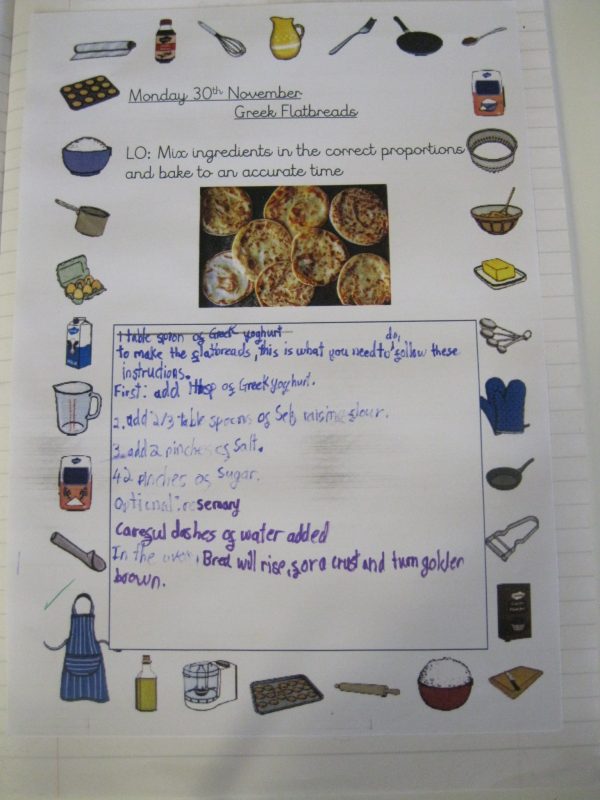 Monday 30th November
Greek Flatbreads
LO: Mix ingredients in the correct proportions
and bake to an accurate time
1 table spoon of Greek yoghurt
do,
to make the flatbreads, this is what you need to follow these
instructions.
First: add 1tbsp of Greek yoghurt.
2. add 2/3 table spoons of Self raising flour.
3. add 2 pinches of Salt.
4 2 pinches of Sugar.
Optional: rosemary
Careful dashes of water added
In the oven, Bread will rise, form a crust and turn golden
brown.